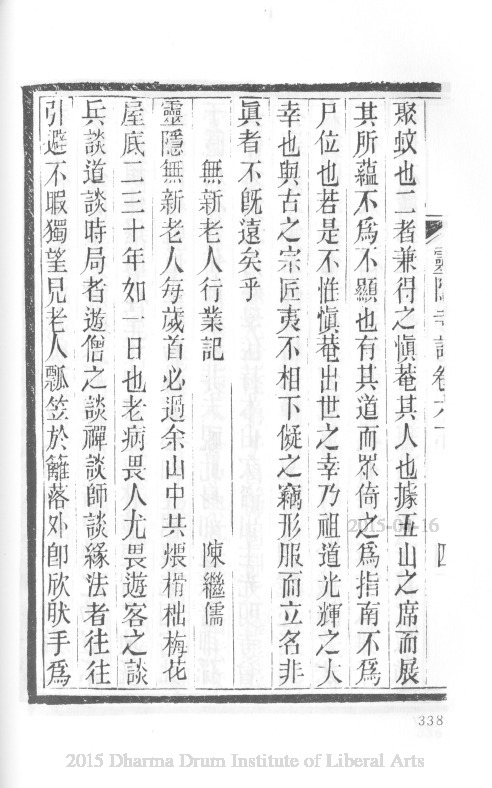 聚蚊也二者兼得之愼菴其人也據五山之席而展
其所蘊不爲不顯也有其道而眾倚之爲指南不爲
尸位也若是不惟愼菴出世之幸乃祖道光輝之大
幸也與古之宗匠夷不相下儗之竊形服而立名非
眞者不旣遠矣乎
無新老人行業記 陳繼儒
靈隱無新老人每歲首必過余山中共煨榾柮梅花
屋底二三十年如一日也老病畏人尤畏遊客之談
兵談道談時局者遊僧之談禪談師談緣法者往往
引避不暇獨望見老人瓢笠於籬落外卽欣肰手爲
338
2015-06-16
2015 Dharma Drum Institute of Liberal Arts